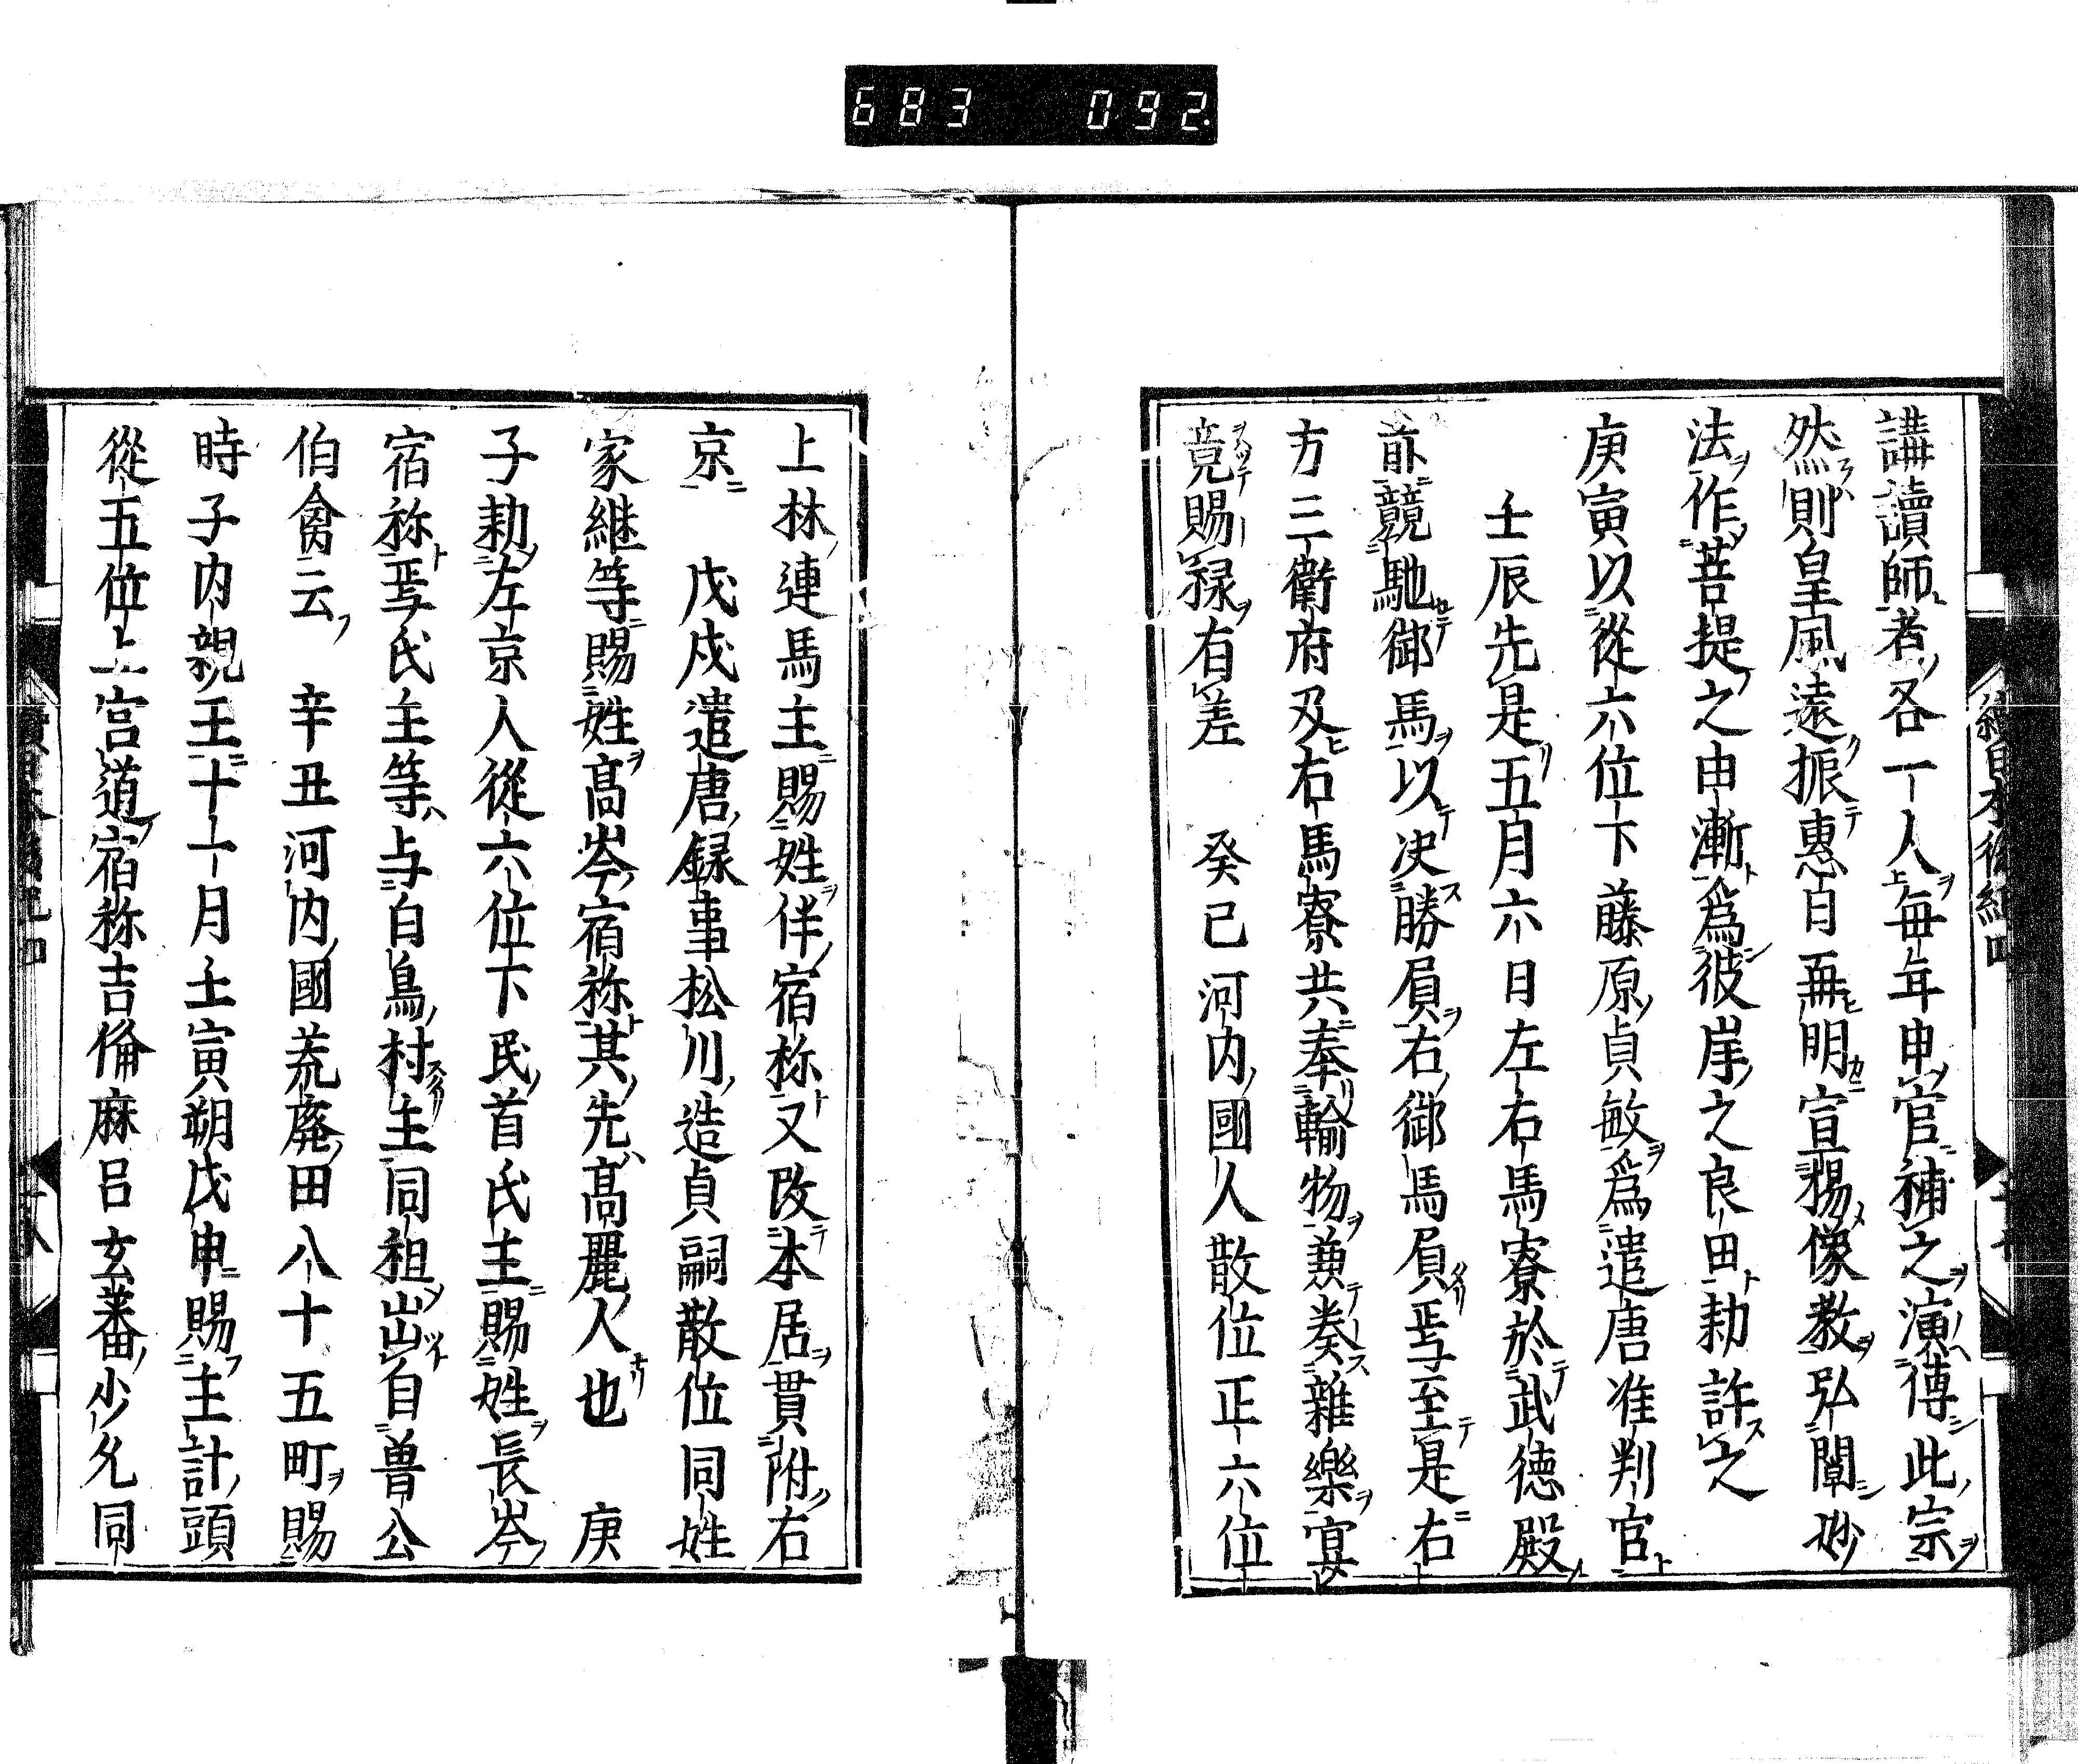 683 092.
講讀師者各一人每年申官補之演傳此宗
然則皇風遠振惠日無明宣揚像教弘闡妙
法作菩提之由漸為彼岸之良田勅許之
庚寅以從六位下藤原貞敏爲遣唐准判官
壬辰先是五月六日左右馬寮於武德殿
前競馳御馬以决勝負右御馬負焉至是右
方三衛府及右馬寮共奉輸物兼奏雜樂宴
竟賜祿有差 癸巳河内國人散位正六位
上林連馬主賜姓伴宿祢又改本居貫附右
京 戊戌遣唐録事松川造貞嗣散位同姓
家継等賜姓高岑宿祢其先高麗人也 庚
子勅左京人從六位下民首氏主賜姓長岑
宿祢焉氏主等与白鳥村主同祖出自曽公
伯禽云 辛丑河内國荒廃田八十五町賜
時子内親王十一月壬寅朔戊申賜主計頭
從五位上宮道宿祢吉備麻呂玄蕃少允同